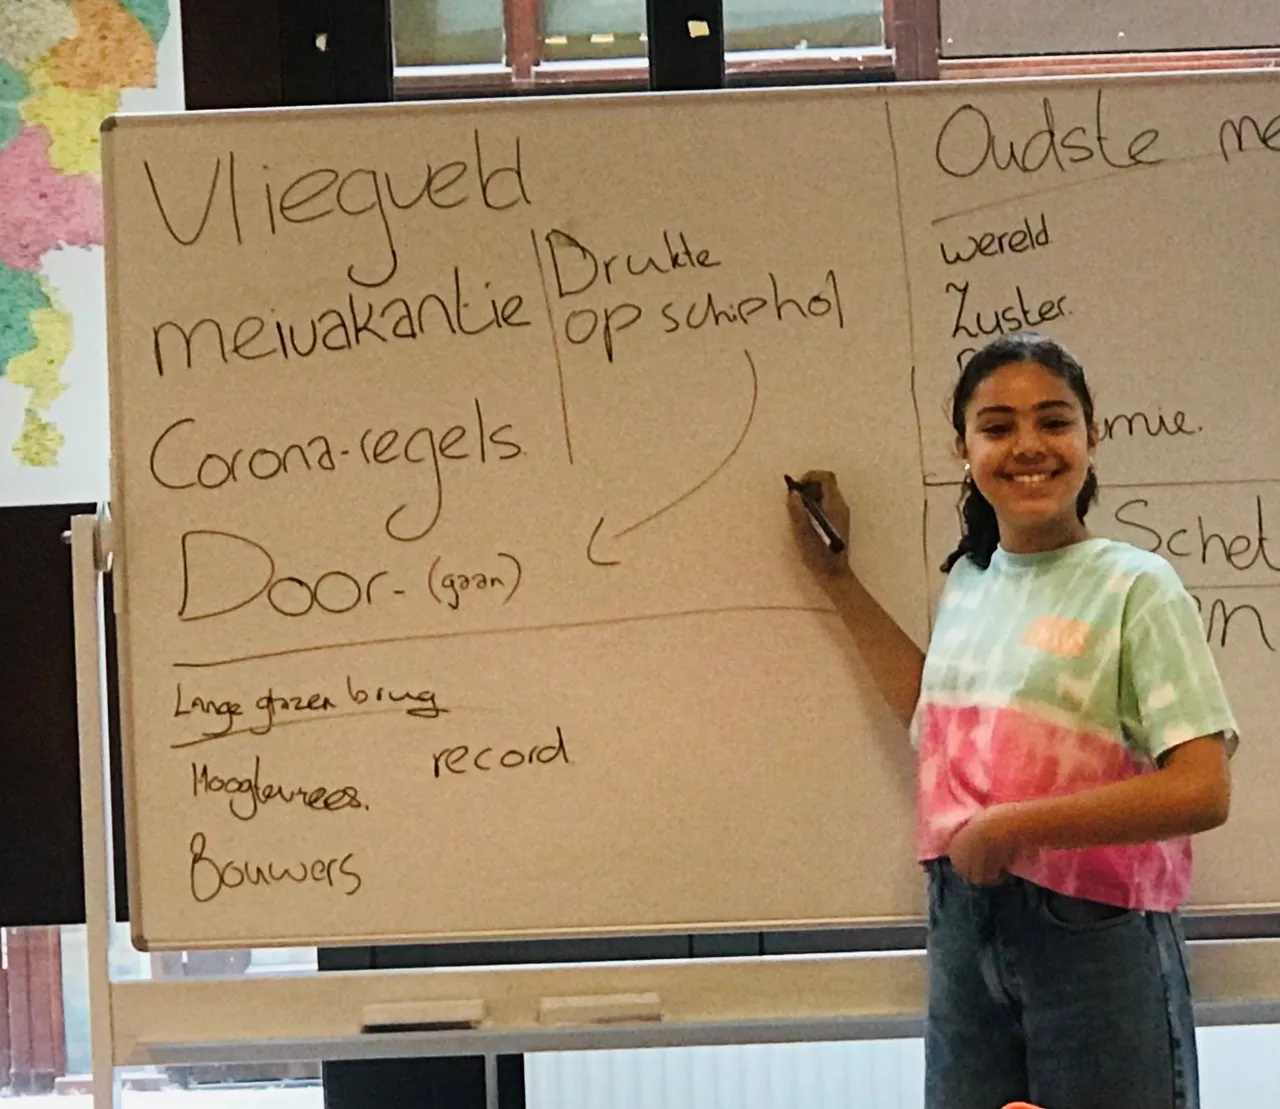 Vliegveld
meivakantie
Corona-regels
Door- (gaan)
Drukte
op schiphol
Lange glazen brug
Hoogtevrees.
record
Bouwers
Oudste me
wereld
Zuster.
mie.
Schet